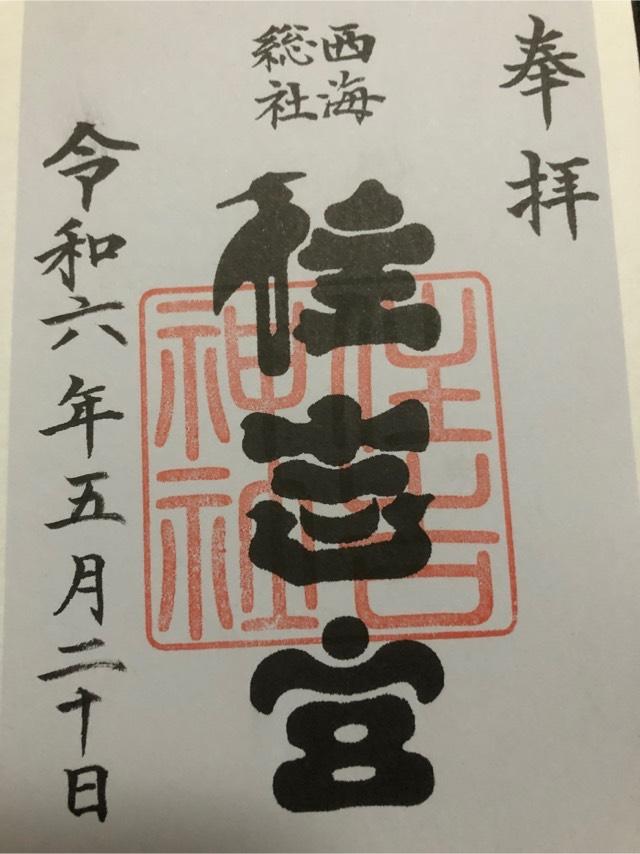 奉拝
西海
総社
住吉宮
住吉
神社
令和六年五月二十日